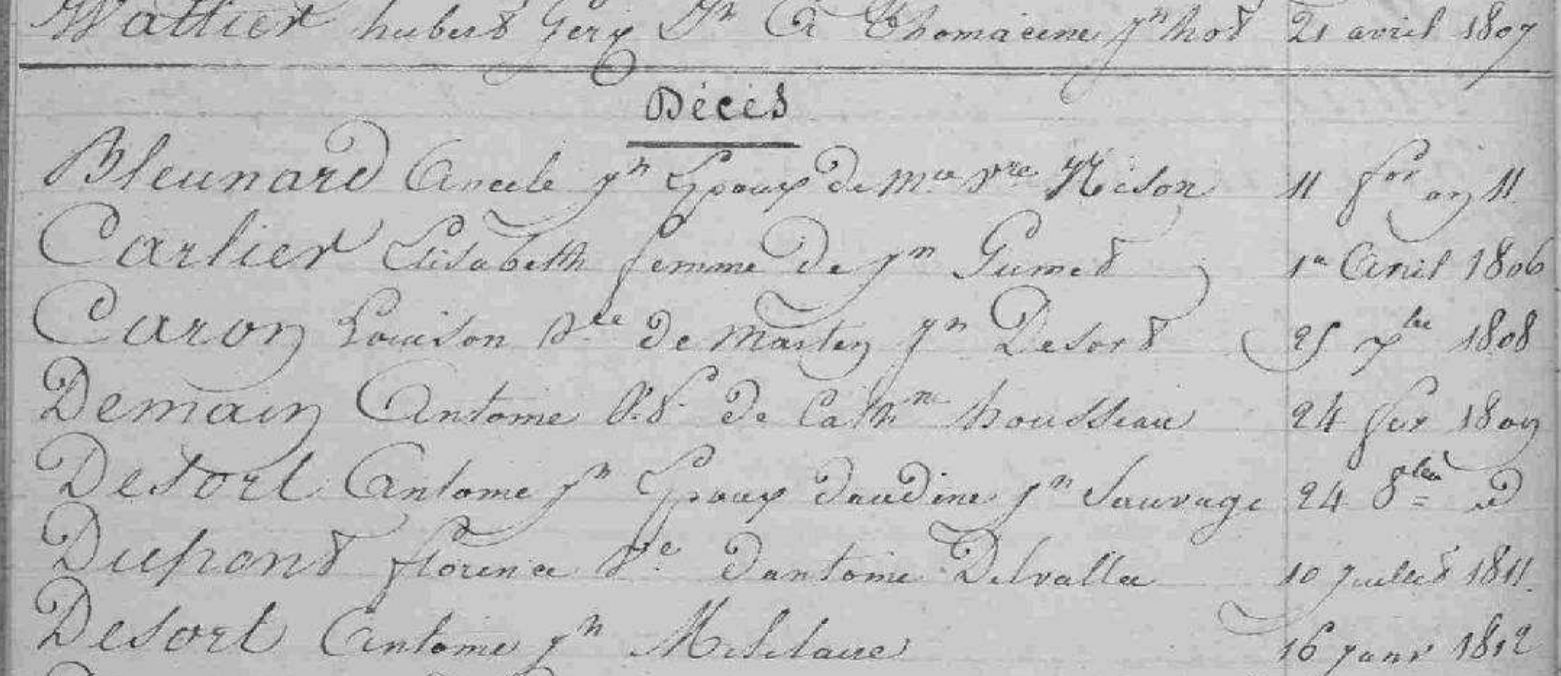 Wattier hubert Géry Jn Et Thomacine Jn hot 21 avril 1807
Décès
Bleunard Ancele Jn Epoux de Mie Vre Nison 11 for an 11
Carlier Elisabeth femme de Jn Gumet 1er Avril 1806
Caron Louison Ve de Martin Jn Desort 25 7bre 1808
Demain Antoine V.f de Cathne housseau 24 fer 1809
Desort Antoine Jn Epoux daudine Jn Sauvage 24 8bre d
Dupont florence Ve dantoine Delvallee 10 juillet 1811
Desort Antoine Jn Militaire 16 janv 1812